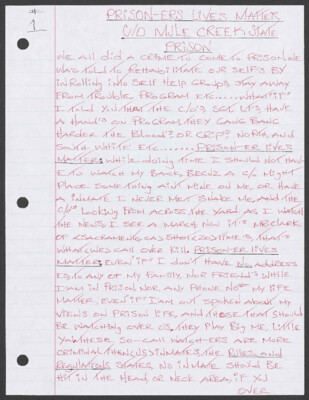 *
1
PRISON-ERS LIVES MATTER
C/O MULE CREEK STATE
PRISON
WE ALL DID A CRIME TO COME TO PRISON. WE
WAS TOLD TO REHABILIMATE OUR SELF'S BY
INROLLING INTO SELF HELP GROUPS STAY AWAY
FROM TROUBLE, PROGRAM ETC..... WHAT IF
I TOLD YOU THAT THE C/O'S SGT. LT'S HAVE
A HAND'S ON PROGRAM, THEY GANG BANG
HARDER THE BLOOD'S OR CRIP'S NORTH, AND
SOUTH, WHITE ETC....... PRISON-ER LIVES
MATTER: WHILE DOING TIME I SHOULD NOT HAVE
TO WATCH MY BACK, BECUZ A C/O MIGHT
PLACE SOMETHING AIN'T MINE ON ME, OR HAVE
A INMATE I NEVER MET SHAKE ME, AND THE
C/O'S LOOKING FROM ACROSS THE YARD. AS I WATCH
THE NEWS I SEE A MARCH NOW IT'S MR. CLARK
OF (SACRAMENTO, CA) SHOT (20) TIME'S, THAT'S
WHAT (WE) CALL OVER KILL PRISON-ER LIVES
MATTER: EVEN IF I DON'T HAVE NO ADDRESS
TO ANY OF MY FAMILY, NOR FRIEND'S WHILE
I AM IN PRISON NOR ANY PHONE NO# MY LIFE
MATTER. EVEN IF I AM OUT SPOKEN ABOUT MY
VIEWS ON PRISON LIFE, AND THOSE THAT SHOULD
BE WATCHING OVER US, THEY PLAY BIG ME, LITTLE
YOU THESE, SO-CALL WATCH-ERS ARE MORE
CRIMINAL THEN US INMATES, THE RULES AND
REGULATIONS STATES, NO INMATE SHOULD BE
HIT IN THE HEAD, OR NECK AREA, IF
OVER